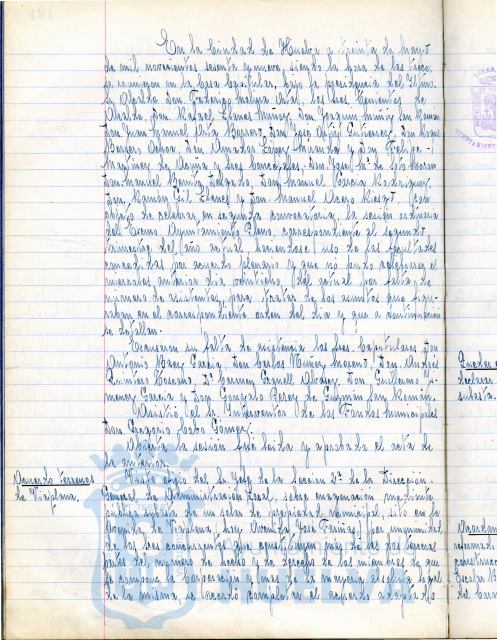 En la Ciudad de Huelva a treinta de Mayo
de mil novecientos sesenta y nueve, siendo la hora de las trece,
se reunen en la Casa Capitular, bajo la presidencia del Iltmo.
Sr. Alcalde Don Federico Molina Orta, los Sres. Tenientes de
Alcalde, Don Rafael
Don Juan Manuel Orta Borrero, Don José Ortiz Gutierrez, Don
Borrero Ochoa, Don Amador Lopez Miranda y Don Felipe
Martinez de Acuña y los Concejales, Don José Mª de
Don Manuel Benitez Salgado, Don Manuel Garcia Rodriguez,
Don Ramon Gil Llanes y Don Manuel Otero Riesgo, con
objeto de celebrar, en segunda convocatoria, la sesión ordinaria
del Excmo. Ayuntamiento Pleno, correspondiente al segundo
trimestre del año actual, haciendose uso de las facultades
concedidas por acuerdo plenario y que no pudo celebrarse el
miercoles anterior dia veintiocho del actual por falta de
número de asistentes, para tratar de los asuntos que figu-
raban en el correspondiente orden del dia y que a continuación
se detallan.
Excusaron su falta de asistencia los Sres. Capitulares Don
Antonio Garcia, Don Carlos Muñoz Moreno, Don Andrés
Dª Carmen Don Guillermo
Garcia y Don Gonzalo Perez de Guzmán San Román.
Asistió el Sr. Interventor de los Fondos municipales
Don Gregorio Cabo Gómez.
Abierta la sesión fue leida y aprobada el acta de
la anterior.
Acuerdo terrenos
de Viaplana.
Visto oficio del Sr. Jefe de la Sección 2ª de la Dirección
General de Administración Local, sobre enagenacion mediante
publica subasta de un solar de propiedad municipal, sito en la
Avenida Viaplana, hoy Avenida José Fariñas, por unanimidad
de los Sres. concurrentes que constituyen mas de las dos terceras
partes del número de hecho y de derecho de los miembros de que
se compone la Corporación y mas de la mayoria absoluta legal
de la misma, se acordó completar el acuerdo adoptado
declarar
subasta.